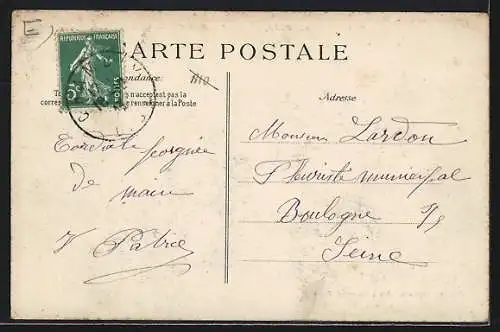 E)
RÉPUBLIQUE FRANÇAISE
5c
POSTES
CARTE POSTALE
Correspondance
Tous les pays n'acceptent pas la
correspondance se renseigner à la Poste
Adresse
Cordiale poignée
de main
Patrice
Monsieur Lardon
Fleuriste municipal
Boulogne s/
Seine